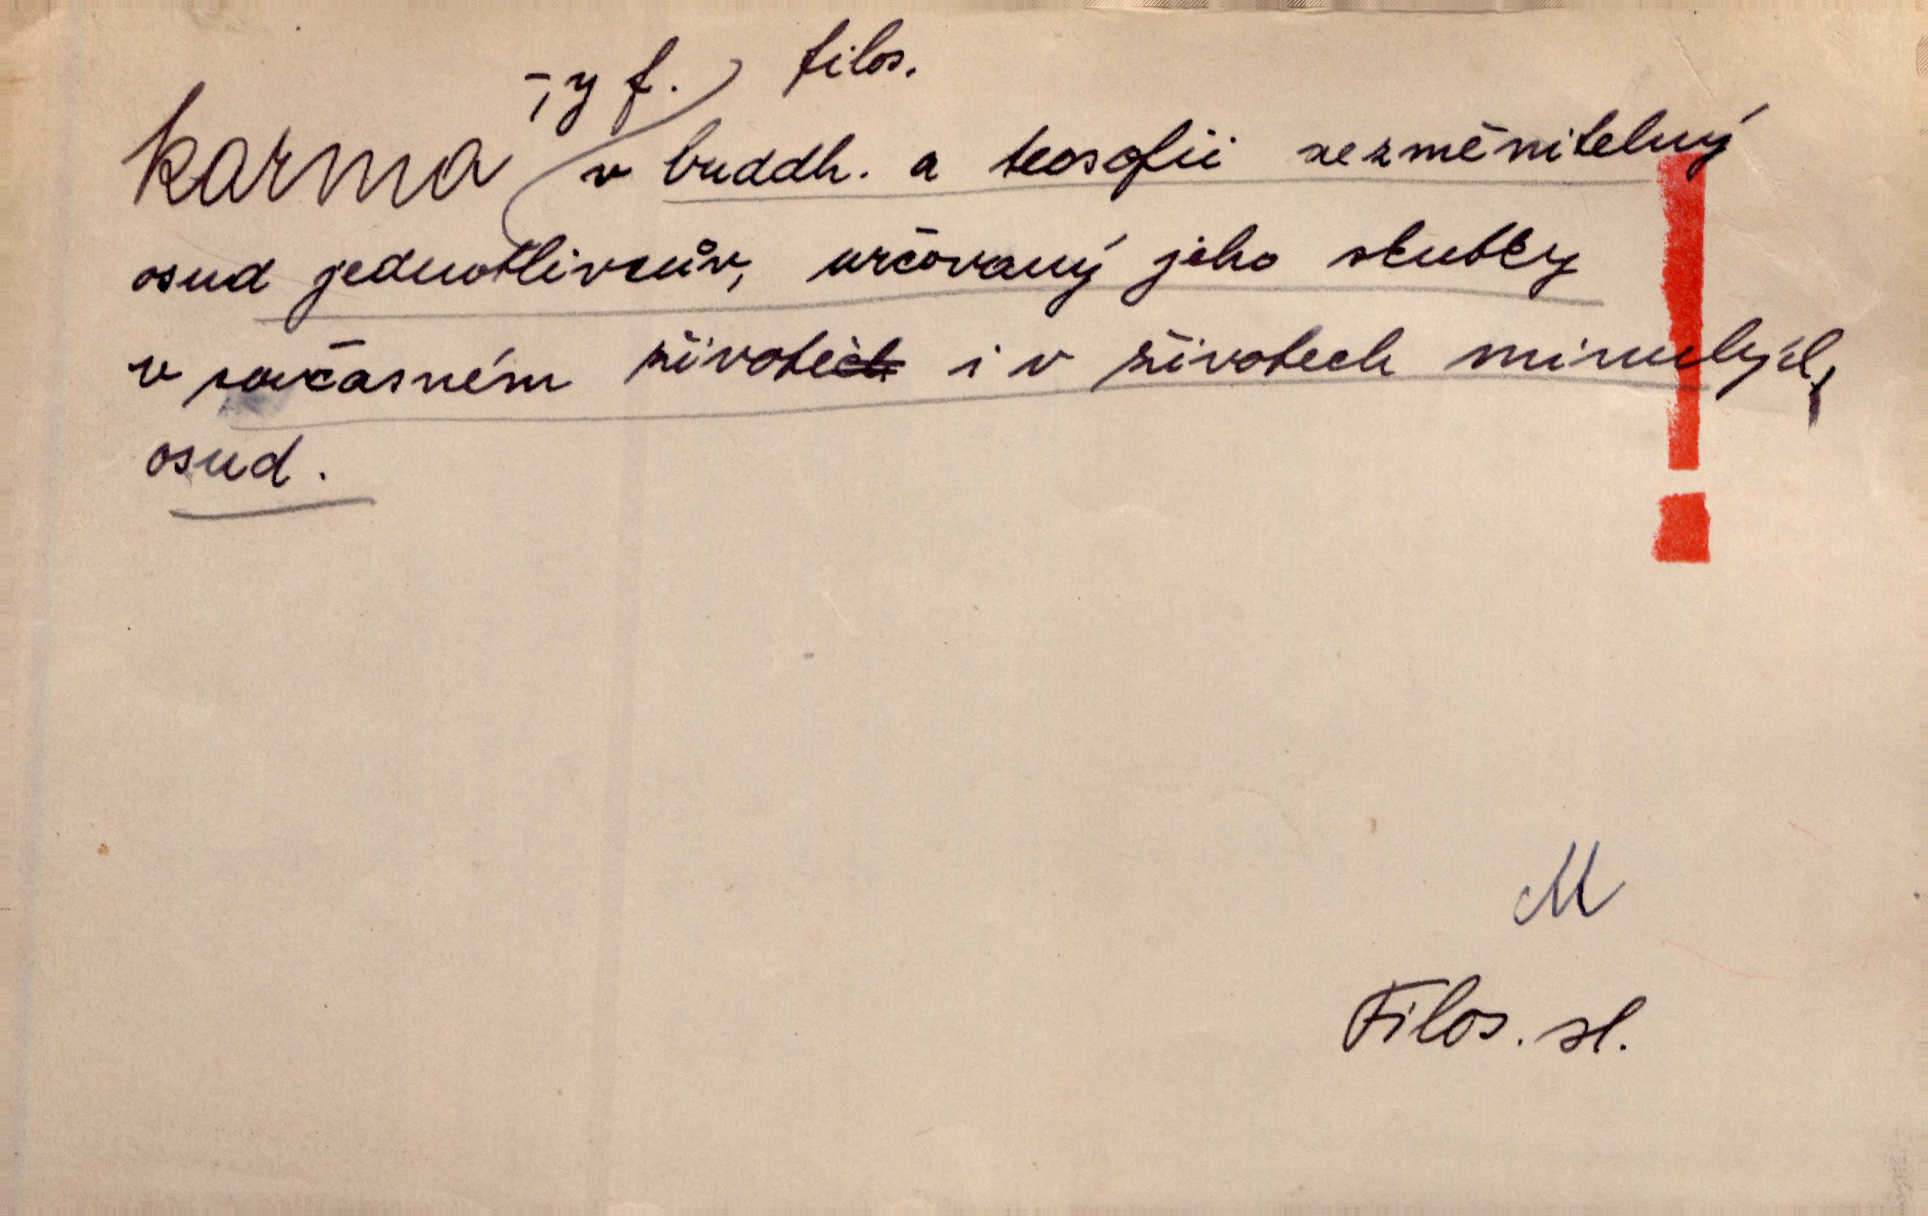 -, y f. filos.
karma v buddh. a teosofii nezměnitelný
osud jednotlivcův, určovaný jeho skutky
v současném životě i v životech minulých,
osud.
!
M
Filos. sl.